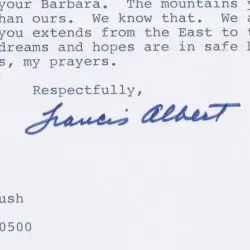 your Barbara. The mountains y
than ours. We know that. We
you extends from the East to t
dreams and hopes are in safe h
s, my prayers.
Respectfully,
Francis Albert
ush
0500